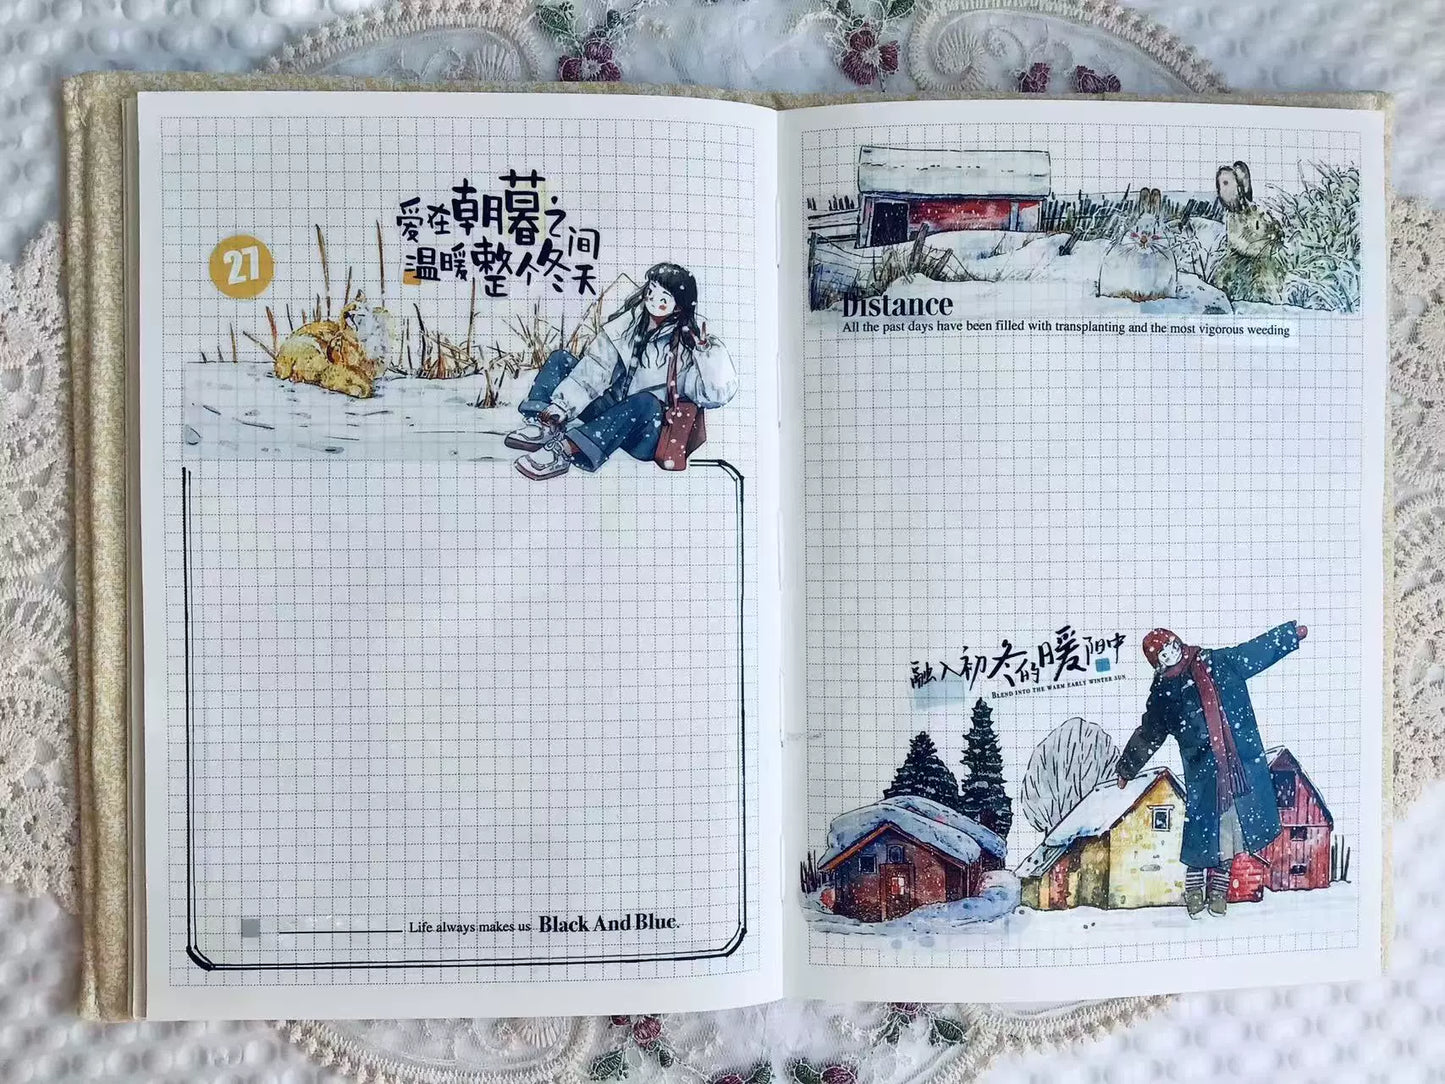 27
爱在朝暮之间
温暖整个冬天
Life always makes us Black And Blue.
Distance
All the past days have been filled with transplanting and the most vigorous weeding
融入初冬的暖阳中
BLEND INTO THE WARM EARLY WINTER SUN